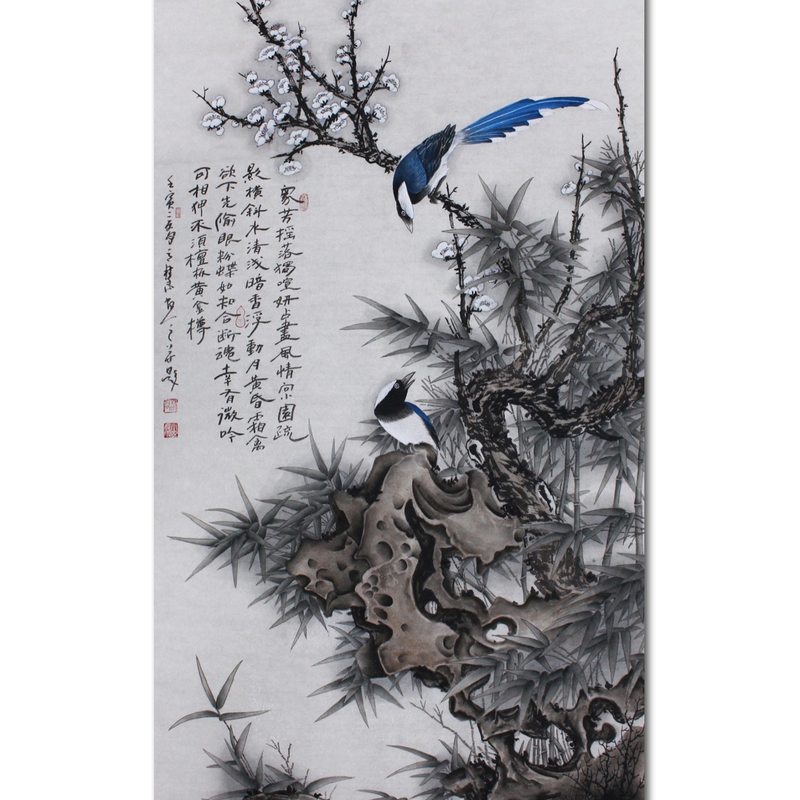 眾芳摇落獨喧妍占盡風情向小園疏
影橫斜水清浅暗香浮動月黄昏霜禽
欲下先偷眼粉蝶如知合断魂幸有微吟
可相狎不須檀板黄金樽
壬寅 题